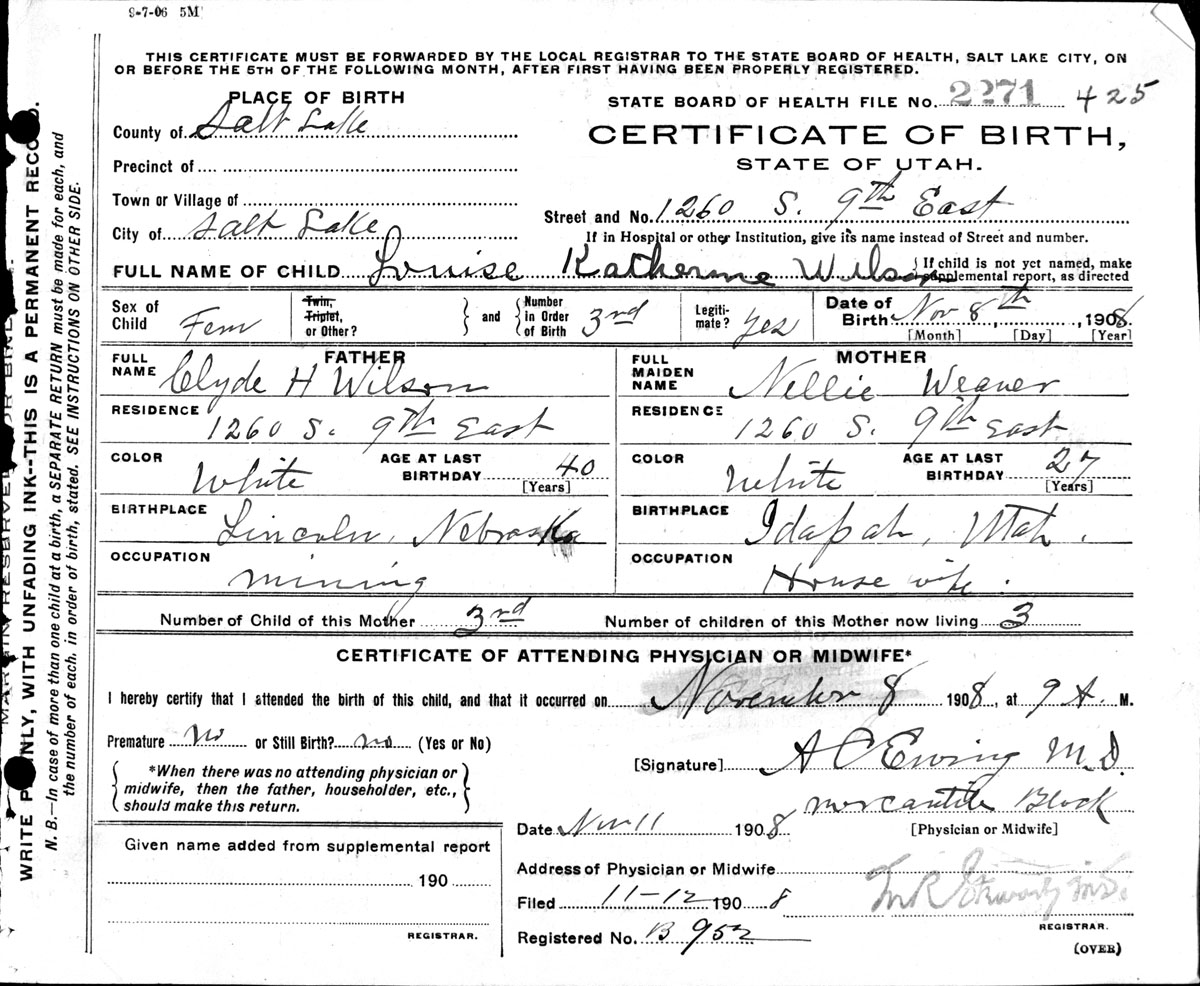 9-7-06 5M
THIS CERTIFICATE MUST BE FORWARDED BY THE LOCAL REGISTRAR TO THE STATE BOARD OF HEALTH, SALT LAKE CITY, ON
OR BEFORE THE 5TH OF THE FOLLOWING MONTH, AFTER FIRST HAVING BEEN PROPERLY REGISTERED.
PLACE OF BIRTH
STATE BOARD OF HEALTH FILE No. 2271 425
County of Salt Lake
CERTIFICATE OF BIRTH,
STATE OF UTAH.
Precinct of
Town or Village of
Street and No. 1260 S. 9th East
City of Salt Lake
If in Hospital or other Institution, give its name instead of Street and number.
FULL NAME OF CHILD Louise Katherine Wilson
If child is not yet named, make
supplemental report, as directed
Sex of Child Fem
Twin, Triplet, or Other?
and Number in Order of Birth 3rd
Legiti-mate? yes
Date of Birth Nov 8th, 1908
[Month] [Day] [Year]
FATHER
FULL NAME Clyde H Wilson
RESIDENCE 1260 S. 9th East
COLOR White AGE AT LAST BIRTHDAY 40 [Years]
BIRTHPLACE Lincoln, Nebraska
OCCUPATION mining
MOTHER
FULL MAIDEN NAME Nellie Weaver
RESIDENCE 1260 S. 9th East
COLOR White AGE AT LAST BIRTHDAY 27 [Years]
BIRTHPLACE Idapah, Utah.
OCCUPATION House wife.
Number of Child of this Mother 3rd Number of children of this Mother now living 3
CERTIFICATE OF ATTENDING PHYSICIAN OR MIDWIFE*
I hereby certify that I attended the birth of this child, and that it occurred on November 8 1908, at 9 A. M.
Premature no or Still Birth? no (Yes or No)
[Signature] A C Ewing M.D.
*When there was no attending physician or
midwife, then the father, householder, etc.,
should make this return.
mercantile Block
Date Nov 11 1908
[Physician or Midwife]
Given name added from supplemental report
190
REGISTRAR.
Address of Physician or Midwife
Filed 11-12 1908
REGISTRAR.
Registered No. B 952
(OVER)
WRITE PLAINLY, WITH UNFADING INK--THIS IS A PERMANENT RECORD.
N. B.—In case of more than one child at a birth, a SEPARATE RETURN must be made for each, and
the number of each, in order of birth, stated. SEE INSTRUCTIONS ON OTHER SIDE.